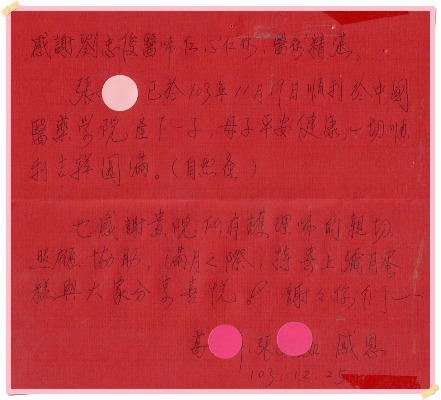 感謝劉志俊醫師仁心仁術、醫術精湛。
張 已於103年11月19日順利於中國
醫藥學院產下一子，母子平安健康，一切順
利吉祥圓滿。(自然產)
也感謝貴院所有護理師的親切
照顧、協助，滿月之際，特寄上彌月蛋
糕與大家分享喜悅 謝謝你們
張 感恩
103.12.25